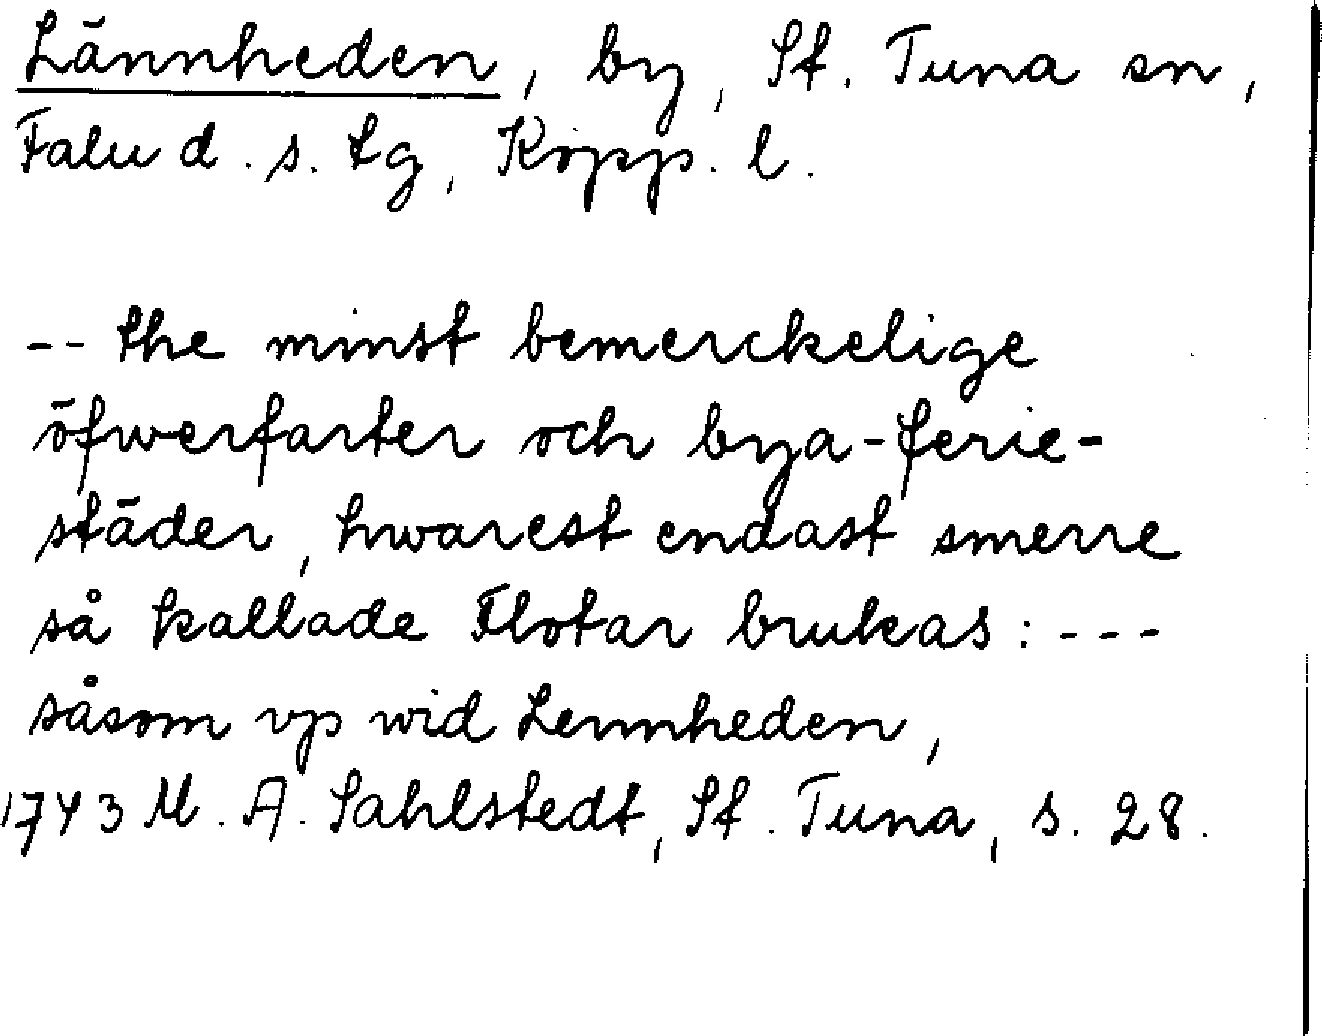 Lännheden, by, St. Tuna sn,
Falu d. s. tg, Kopp. l.
-- the minst bemerckelige
öfwerfarter och bya-ferie-
städer, hwarest endast smerre
så kallade Flotar brukas: ---
såsom vp wid Lennheden,
1743 M. A. Sahlstedt, St. Tuna, s. 28.